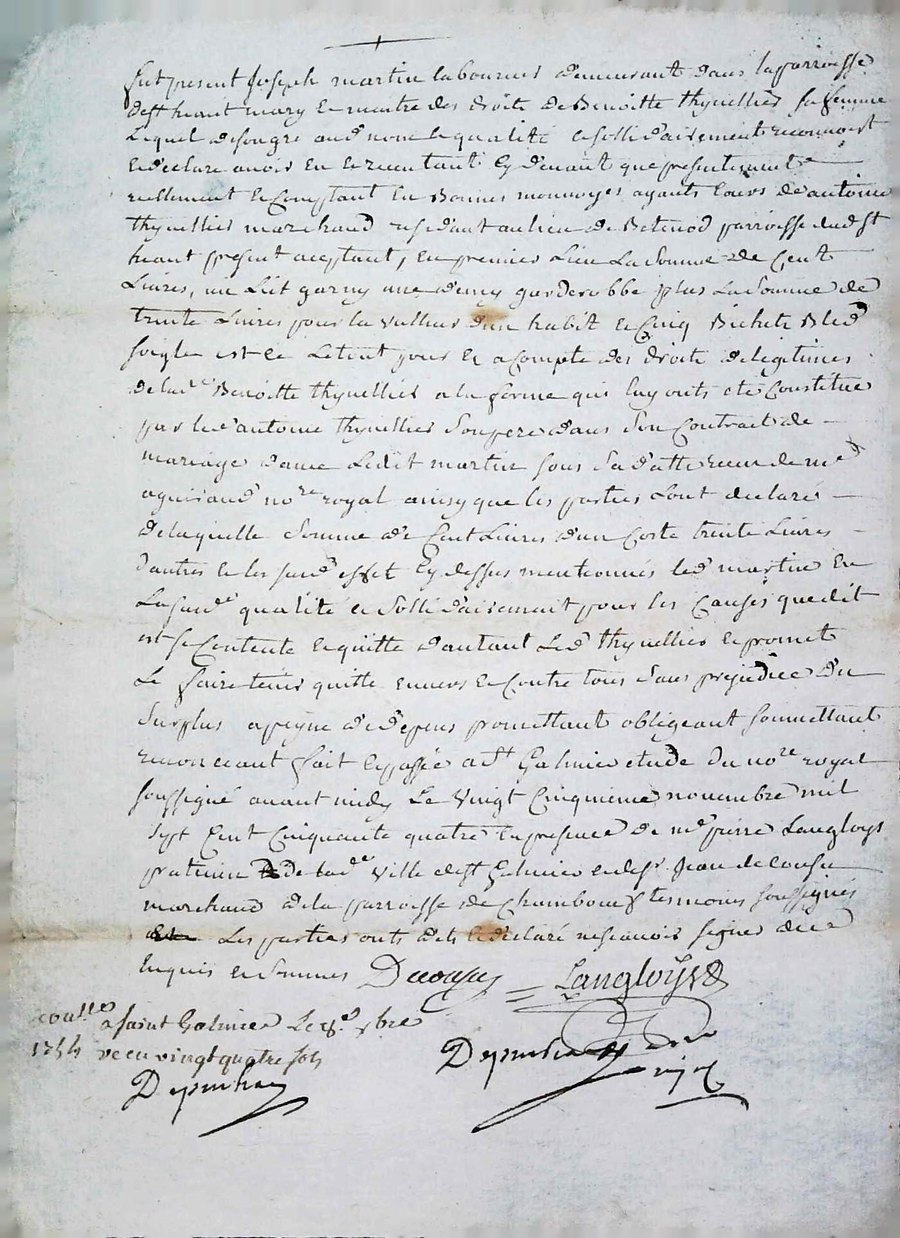 fut present Joseph martin laboureur demeurant dans la parroisse
de st heant mary et maitre des droits de Benoitte thyvellier sa femme
Lequel de son gre aud nom et qualité et sollidairement reconnoist
et declare avoir eu et reçeu tant cy devant que presentement
reellement et Comptant en Bonnes monnoyes ayants cours de antoine
thyvellier marchand residant au lieu de parroisse dud st
heant present aceptant, en premier Lieu La somme de Cent
Livres, un Lit garny une garderobbe plus La Somme de
trente Livres pour la valleur d'un habit et Cinq Bichets Bled
soigle et ce Letout pour et a compte des droits de legitimes
de lade Benoitte thyvellier a la forme qui luy onts eté Constitue
par led antoine thyvellier son pere dans son Contract de
mariage avec Ledit martin sous sa datte receu de me
aguiraud nore royal ainsy que les parties L'ont declaré
de laquelle somme de Cent Livres d'un Costé trente Livres
d'autres et les susd effet cy dessus mentionnés led martin en
La susde qualité et Sollidairement pour les Causes que dit
est se Contente et quitte d'autant Led thyvellier et promet
Le faire tenir quitte envers et Contre tous Sans prejudice du
Surplus a peyne de depens promettant obligeant soumettant
renonceant fait et passée a st Galmier etude du nore royal
soussigné avant midy Le Vingt Cinquieme novembre mil
Sept Cent Cinquante quatre En presence de me pierre Langloys
praticien de lade Ville de st Galmier et de sr Jean
marchand de la parroisse de Chambœuf tesmoins soussignés
Les parties onts dits et declaré ne sçavoir signer de ce
Enquis et Sommes Langloys
a Saint Galmier Le
1754 receu vingt quatre sols